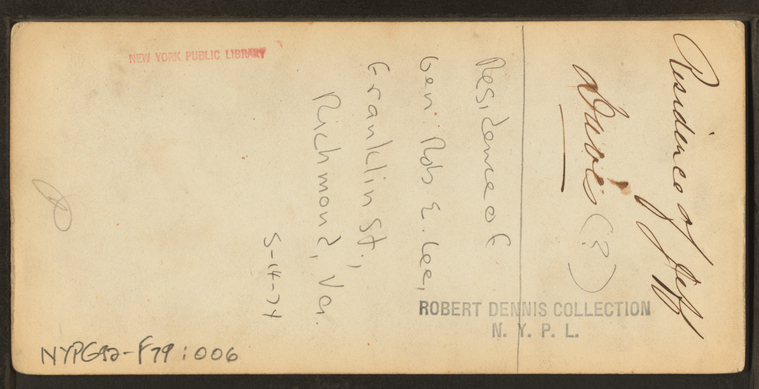 Residence of Jeff
Davis (?)
Residence of
Gen. Rob E. Lee,
Franklin St.,
Richmond, Va.
5-14-74
NEW YORK PUBLIC LIBRARY
ROBERT DENNIS COLLECTION
N. Y. P. L.
NYPG92-F79:006